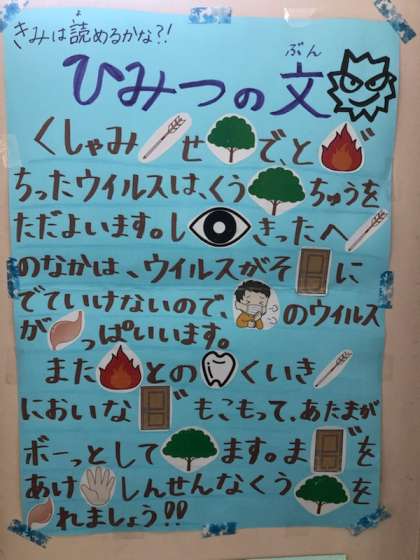 きみは読めるかな?!
ぶん
ひみつの文
くしゃみ せ で、と ゛
ちったウイルスは、くう ちゅうを
ただよいます。し きったへ
のなかは、ウイルスがそ に
でていけないので、 のウイルス
が っぱいいます。
また との くいき
においな ゛もこもって、あたまが
ボーっとして ます。ま ゛を
あけ しんせんなくう を
れましょう!!